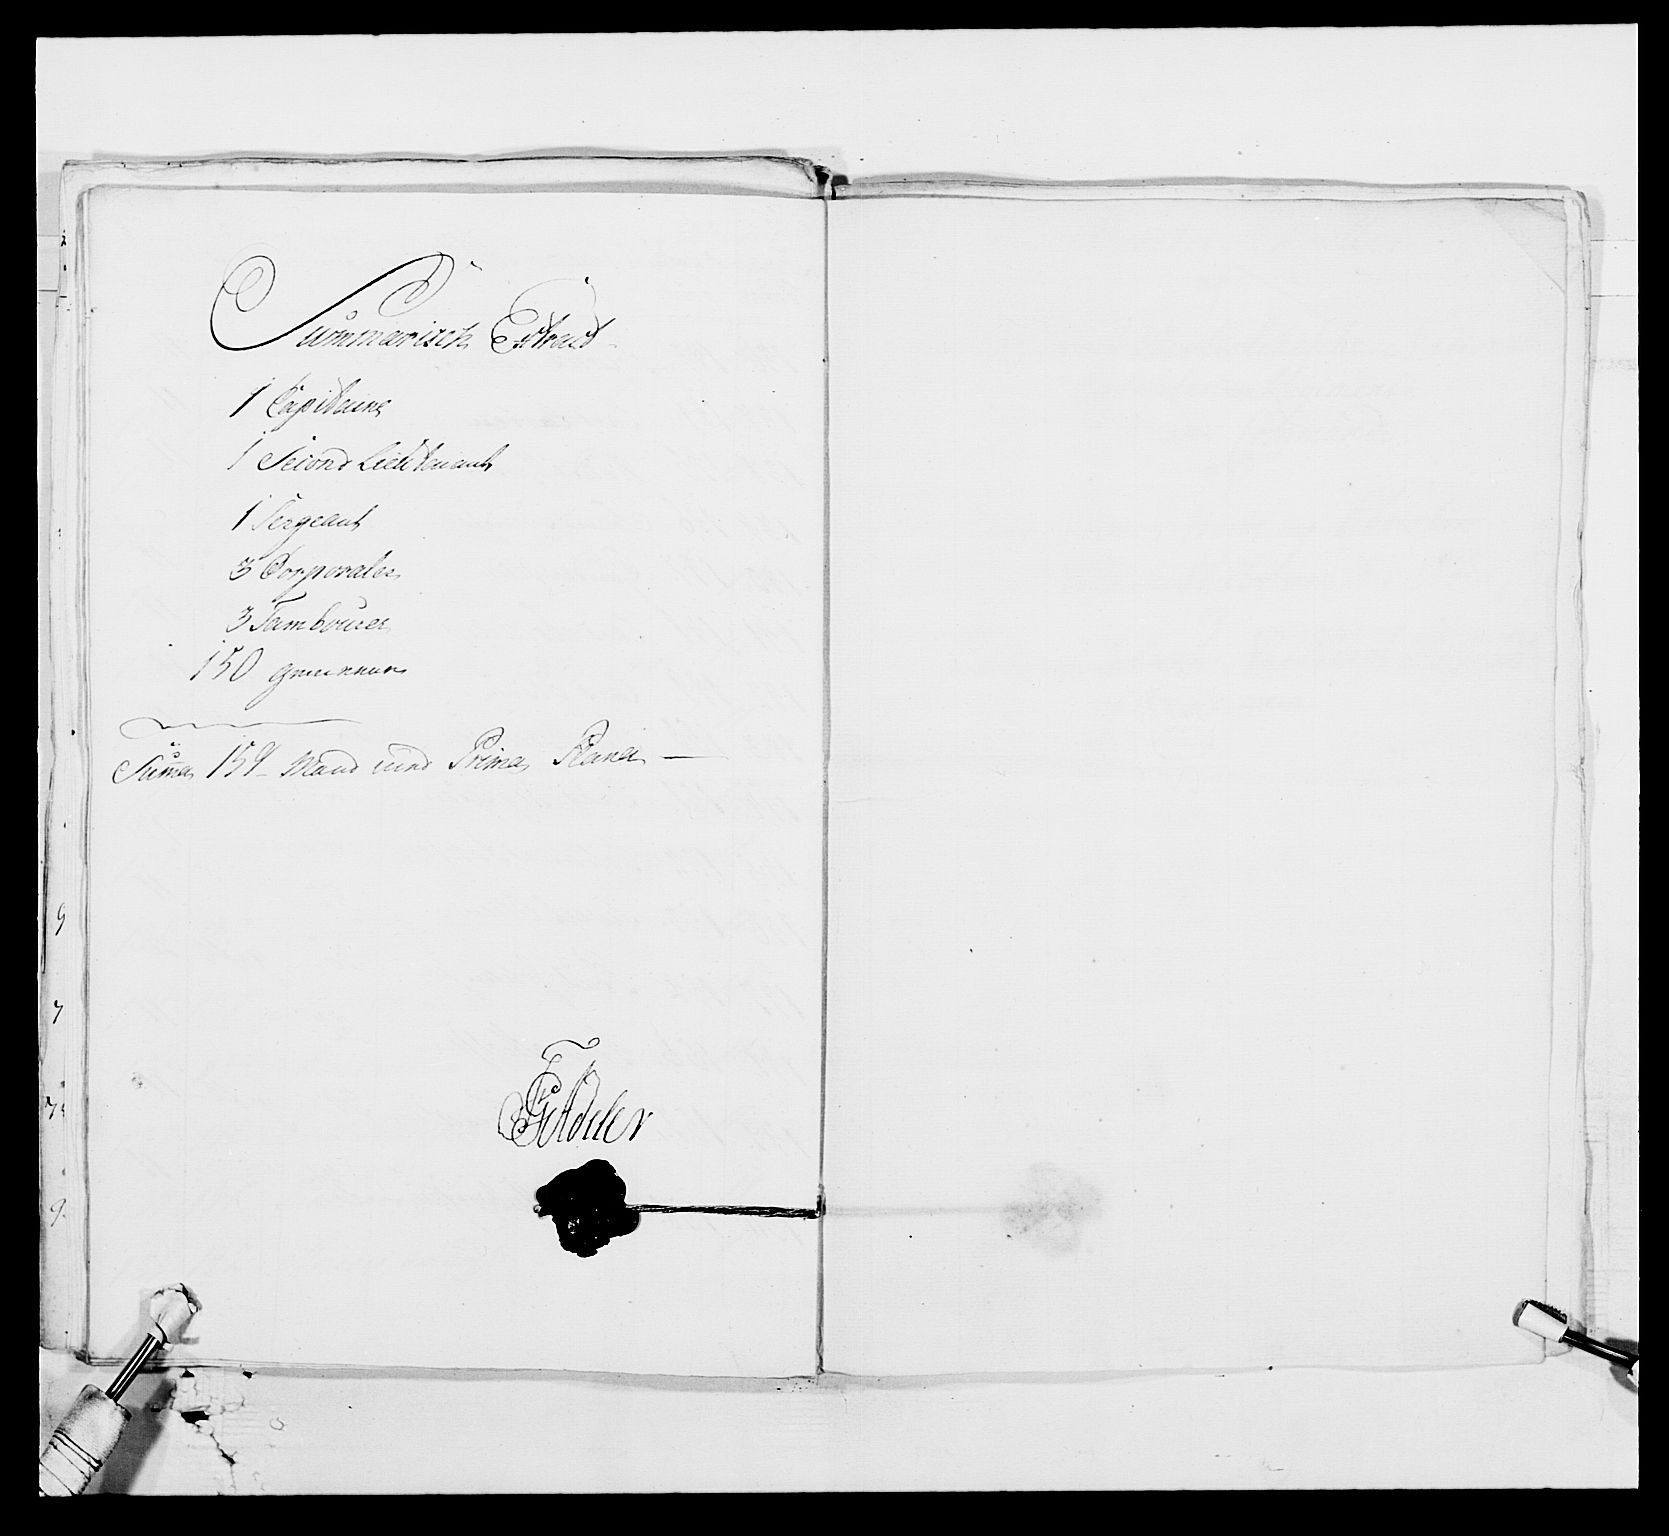 Summarisch Extract
1 Capitaine
1 Second Lieutenant
1 Sergeant
3 Corporales
3 Tambourer
150 gemeinner
Suma 159 Mand und Prima Plana
9
7
9